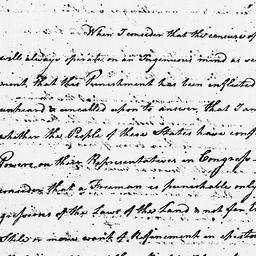 When I consider that the censure of
will always operate on an Ingenuous mind as se
ment, that this Punishment has been inflicted
unheard & uncalled upon to answer, that I am
whether the People of these States have conf
Powers on their Representatives in Congress
consider that a Freeman is punishable only
gressions of the Laws of the Land & not for
Stile or mere want of Refinement in